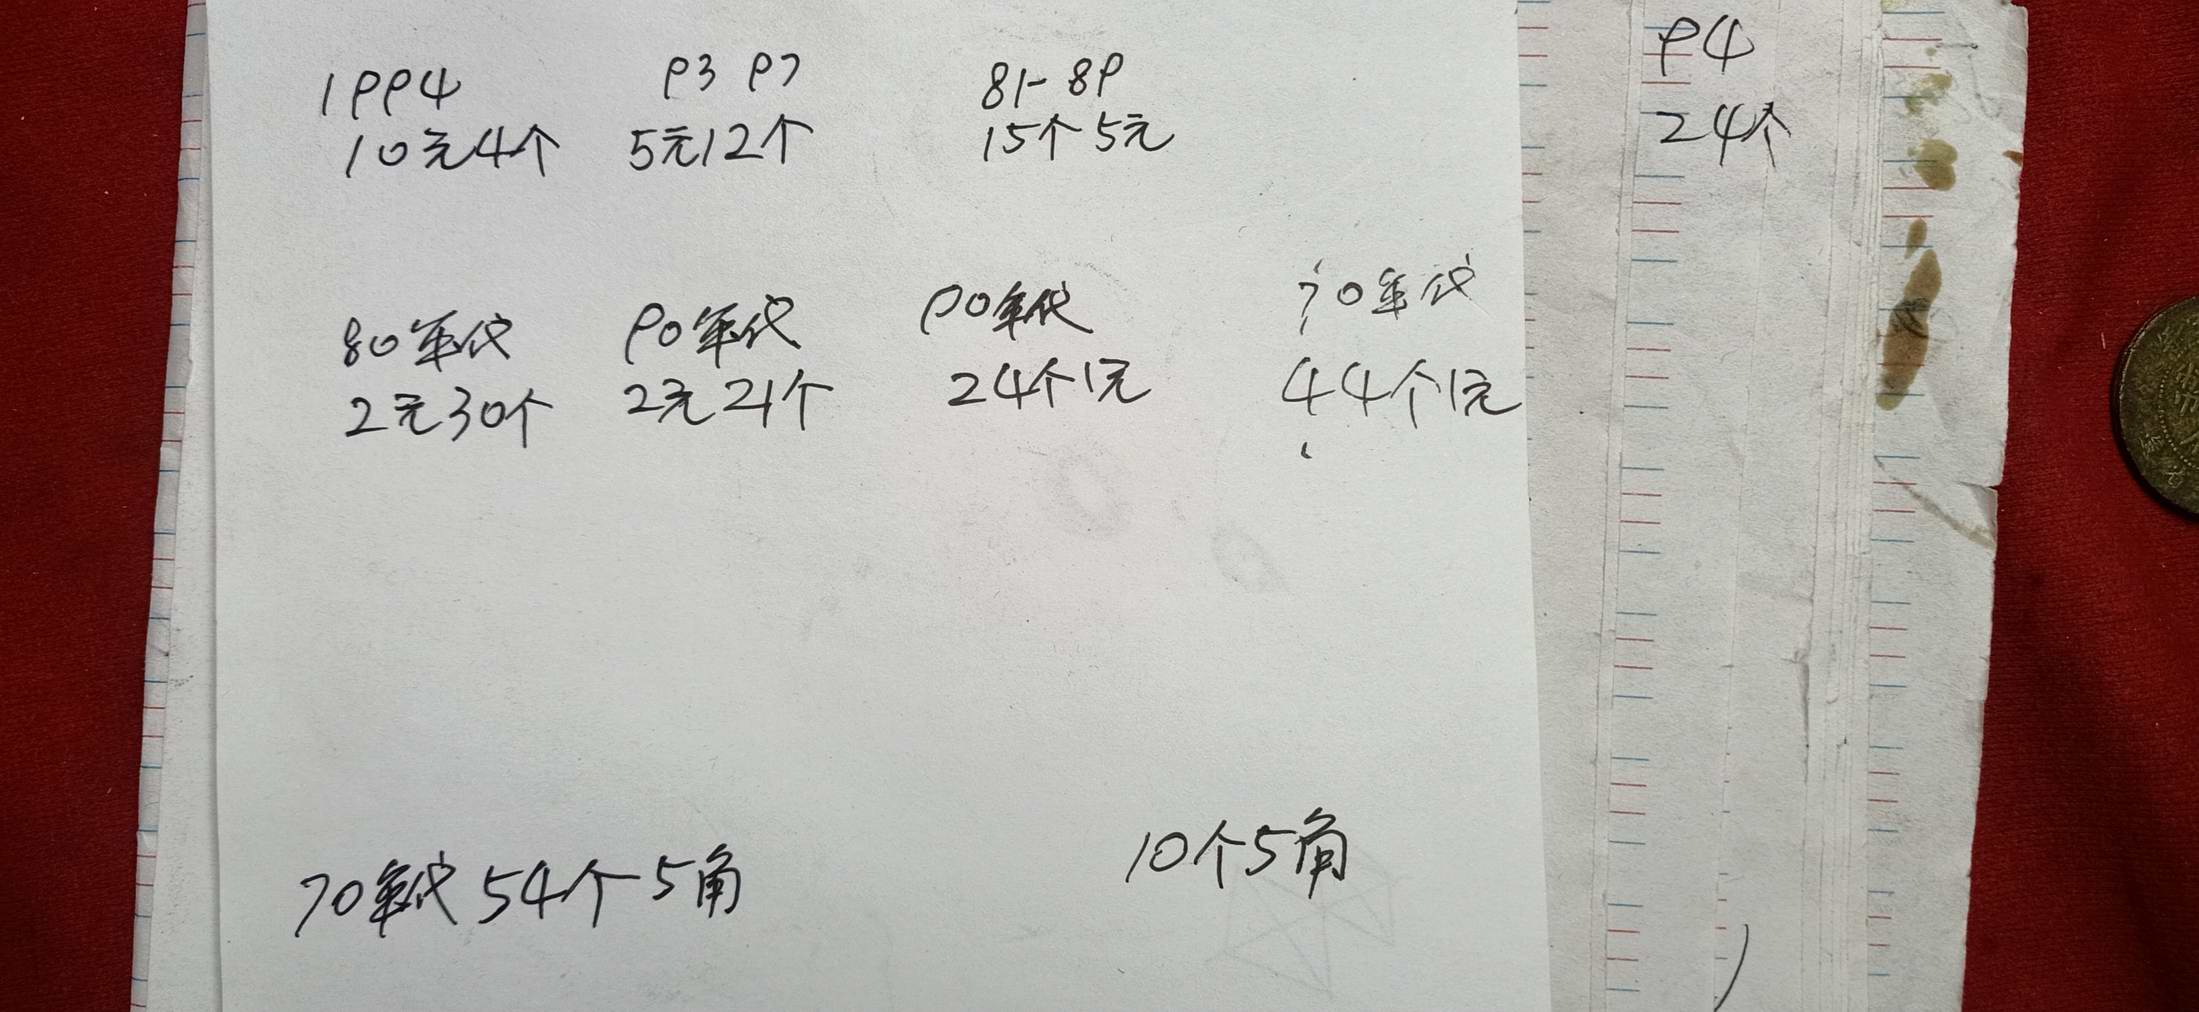 1994
10元4个
93 97
5元12个
81-89
15个5元
94
24个
80年代
2元30个
90年代
2元21个
90年代
24个1元
70年代
44个1元
70年代54个5角
10个5角